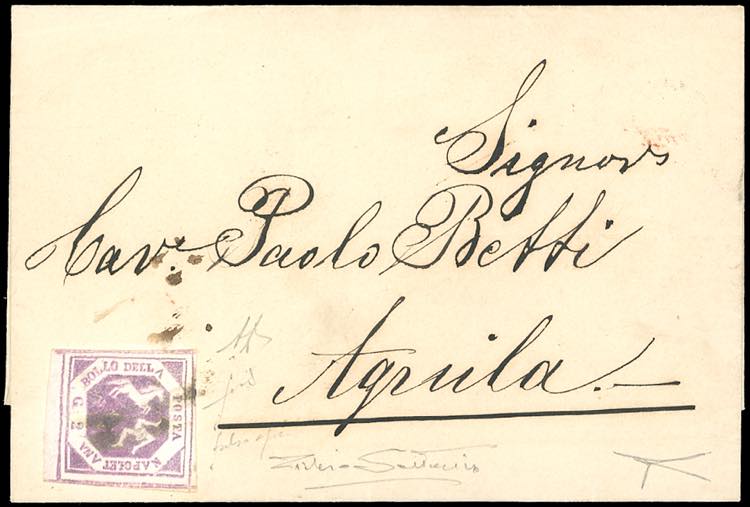 Signor
Cav. Paolo Betti
Aquila.
BOLLO DELLA
POSTA
NAPOLETANA
G. 2